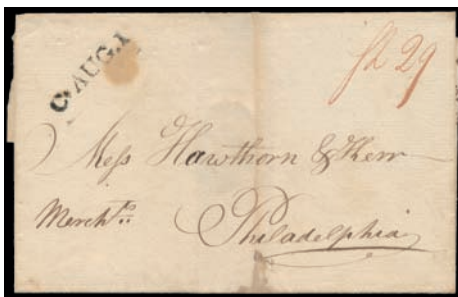 C·AUG.1
sh 29
Mess Hawthorn & Kerr
Merchts
Philadelphia